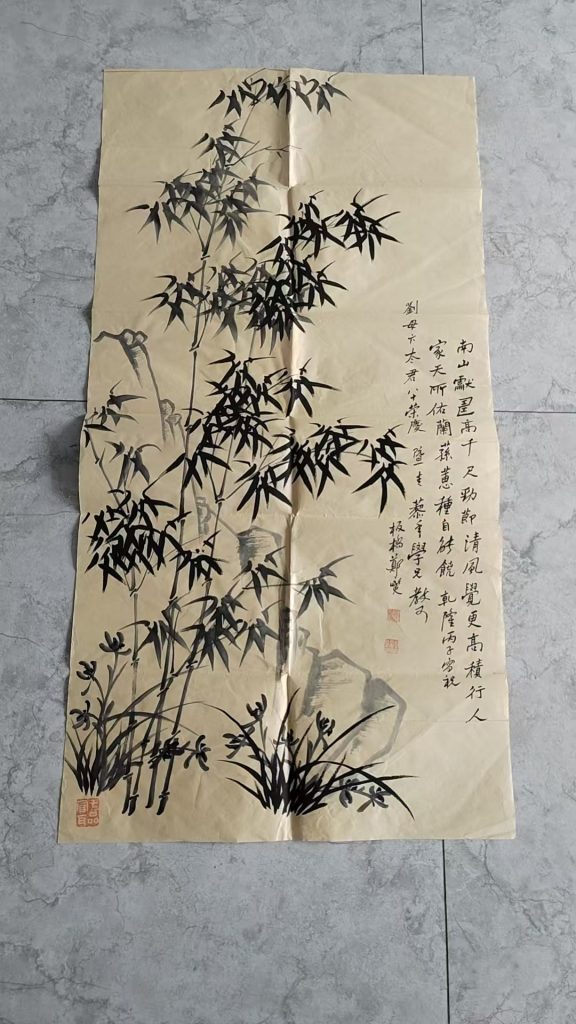 南山獻匤高千尺勁節清風覺更高積行人
家天所佑蘭蓀蕙種自能饒 乾隆丙子寫祝
劉母卞太君八十榮慶 學兄教可
板橋鄭燮